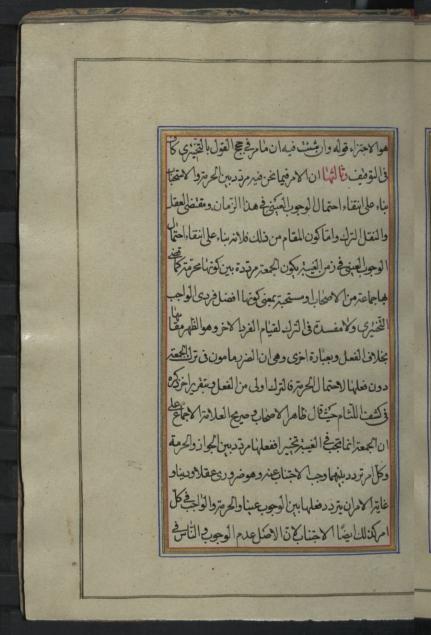 هو الاجتزاء قوله وان شئت فيه ان ما مر في حج القول بالتخييرى كان
فى التوظيف وثالثها ان الامر فيما نحن فيه مردد بين الحرمة والاستحباب
بناء على انتفاء احتمال الوجوب العينى فى هذا الزمان ومقتضى العقل
والنقل الترك واما كون المقام من ذلك فلانه بناء على انتفاء احتمال
الوجوب العينى فى زمن الغيبة يكون الجمعة مرددة بين كونها محرمة كما قضى
بها جماعة من الاصحاب او مستحبة بمعنى كونها افضل فردى الواجب
التخييرى ولا مفسدة فى الترك لقيام الفرد الاخر وهو الظهر مقامها
بخلاف الفعل وبعبارة اخرى وهى ان الضرر مامون فى ترك الجمعة
دون فعلها لاحتمال الحرمة فالترك اولى من الفعل وبتقرير اخر ذكره
فى كشف اللثام حيث قال ظاهر الاصحاب وصريح العلامة الاجماع على
ان الجمعة انما تجب فى الغيبة تخييرا ففعلها مردد بين الجواز والحرمة
وكل امر تردد بينهما وجب الاجتناب عنه وهو ضرورى عقلا ودينا و
غاية الامر ان يتردد فعلها بين الوجوب عينا والحرمة والواجب فى كل
امر كذلك ايضا الاجتناب لان الاصل عدم الوجوب والناس فى